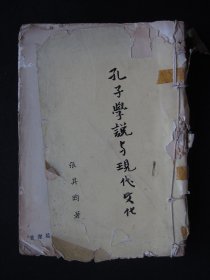 孔子學說与現代文化
張其昀著